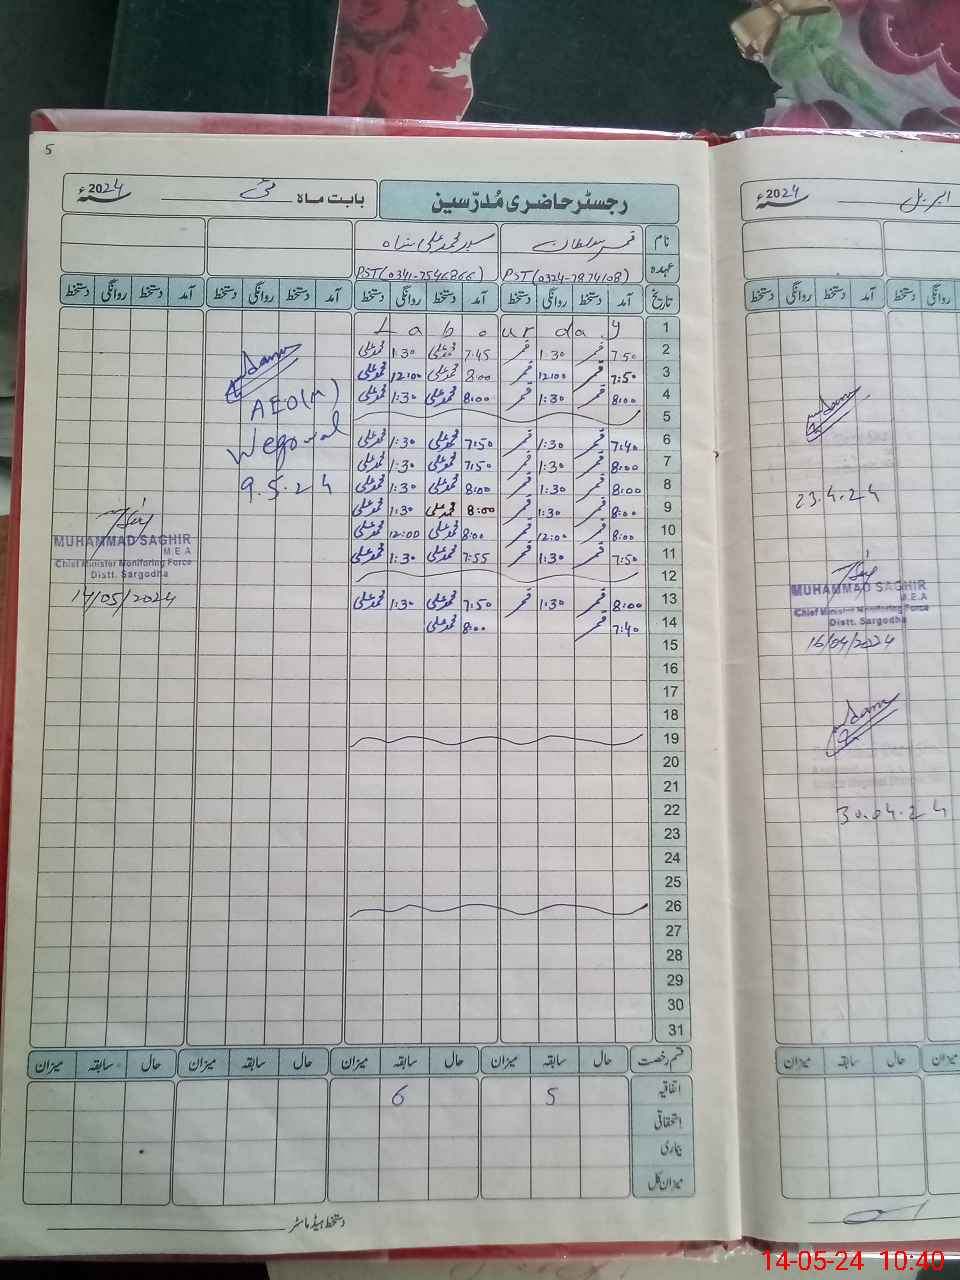 5
رجسٹر حاضری مُدرّسین
بابت ماہ مئی 2024ء
نام قمر سلطان سید محمد علی شاہ
عہدہ PST(0324-7874108) PST(0341-7546866)
تاریخ آمد دستخط روانگی دستخط آمد دستخط روانگی دستخط آمد دستخط روانگی دستخط آمد دستخط روانگی دستخط
1 Labour day
2 7:50 قمر 1:30 قمر 7:45 محمد علی 1:30 محمد علی
3 7:50 قمر 12:00 قمر 8:00 محمد علی 12:00 محمد علی
4 8:00 قمر 1:30 قمر 8:00 محمد علی 1:30 محمد علی
5
6 7:40 قمر 1:30 قمر 7:50 محمد علی 1:30 محمد علی
7 8:00 قمر 1:30 قمر 7:50 محمد علی 1:30 محمد علی
8 8:00 قمر 1:30 قمر 8:00 محمد علی 1:30 محمد علی
9 8:00 قمر 1:30 قمر 8:00 محمد علی 1:30 محمد علی
10 8:00 قمر 12:00 قمر 8:00 محمد علی 12:00 محمد علی
11 7:50 قمر 1:30 قمر 7:55 محمد علی 1:30 محمد علی
12
13 8:00 قمر 1:30 قمر 7:50 محمد علی 1:30 محمد علی
14 7:40 قمر 8:00 محمد علی
15
16
17
18
19
20
21
22
23
24
25
26
27
28
29
30
31
AEO(M)
9.5.24
MUHAMMAD SAGHIR
M.E.A
Chief Minister Monitoring Force
Distt. Sargodha
14/05/2024
قسم رخصت حال سابقہ میزان حال سابقہ میزان حال سابقہ میزان حال سابقہ میزان
اتفاقیہ 5 6
استحقاقی
بیماری
میزان کل
دستخط ہیڈ ماسٹر
2024ء
اپریل
آمد دستخط روانگی دستخط
روانگی
23.4.24
MUHAMMAD SAGHIR
M.E.A
Chief Minister Monitoring Force
Distt. Sargodha
16/04/2024
30.04.24
حال سابقہ میزان
میزان
14-05-24 10:40